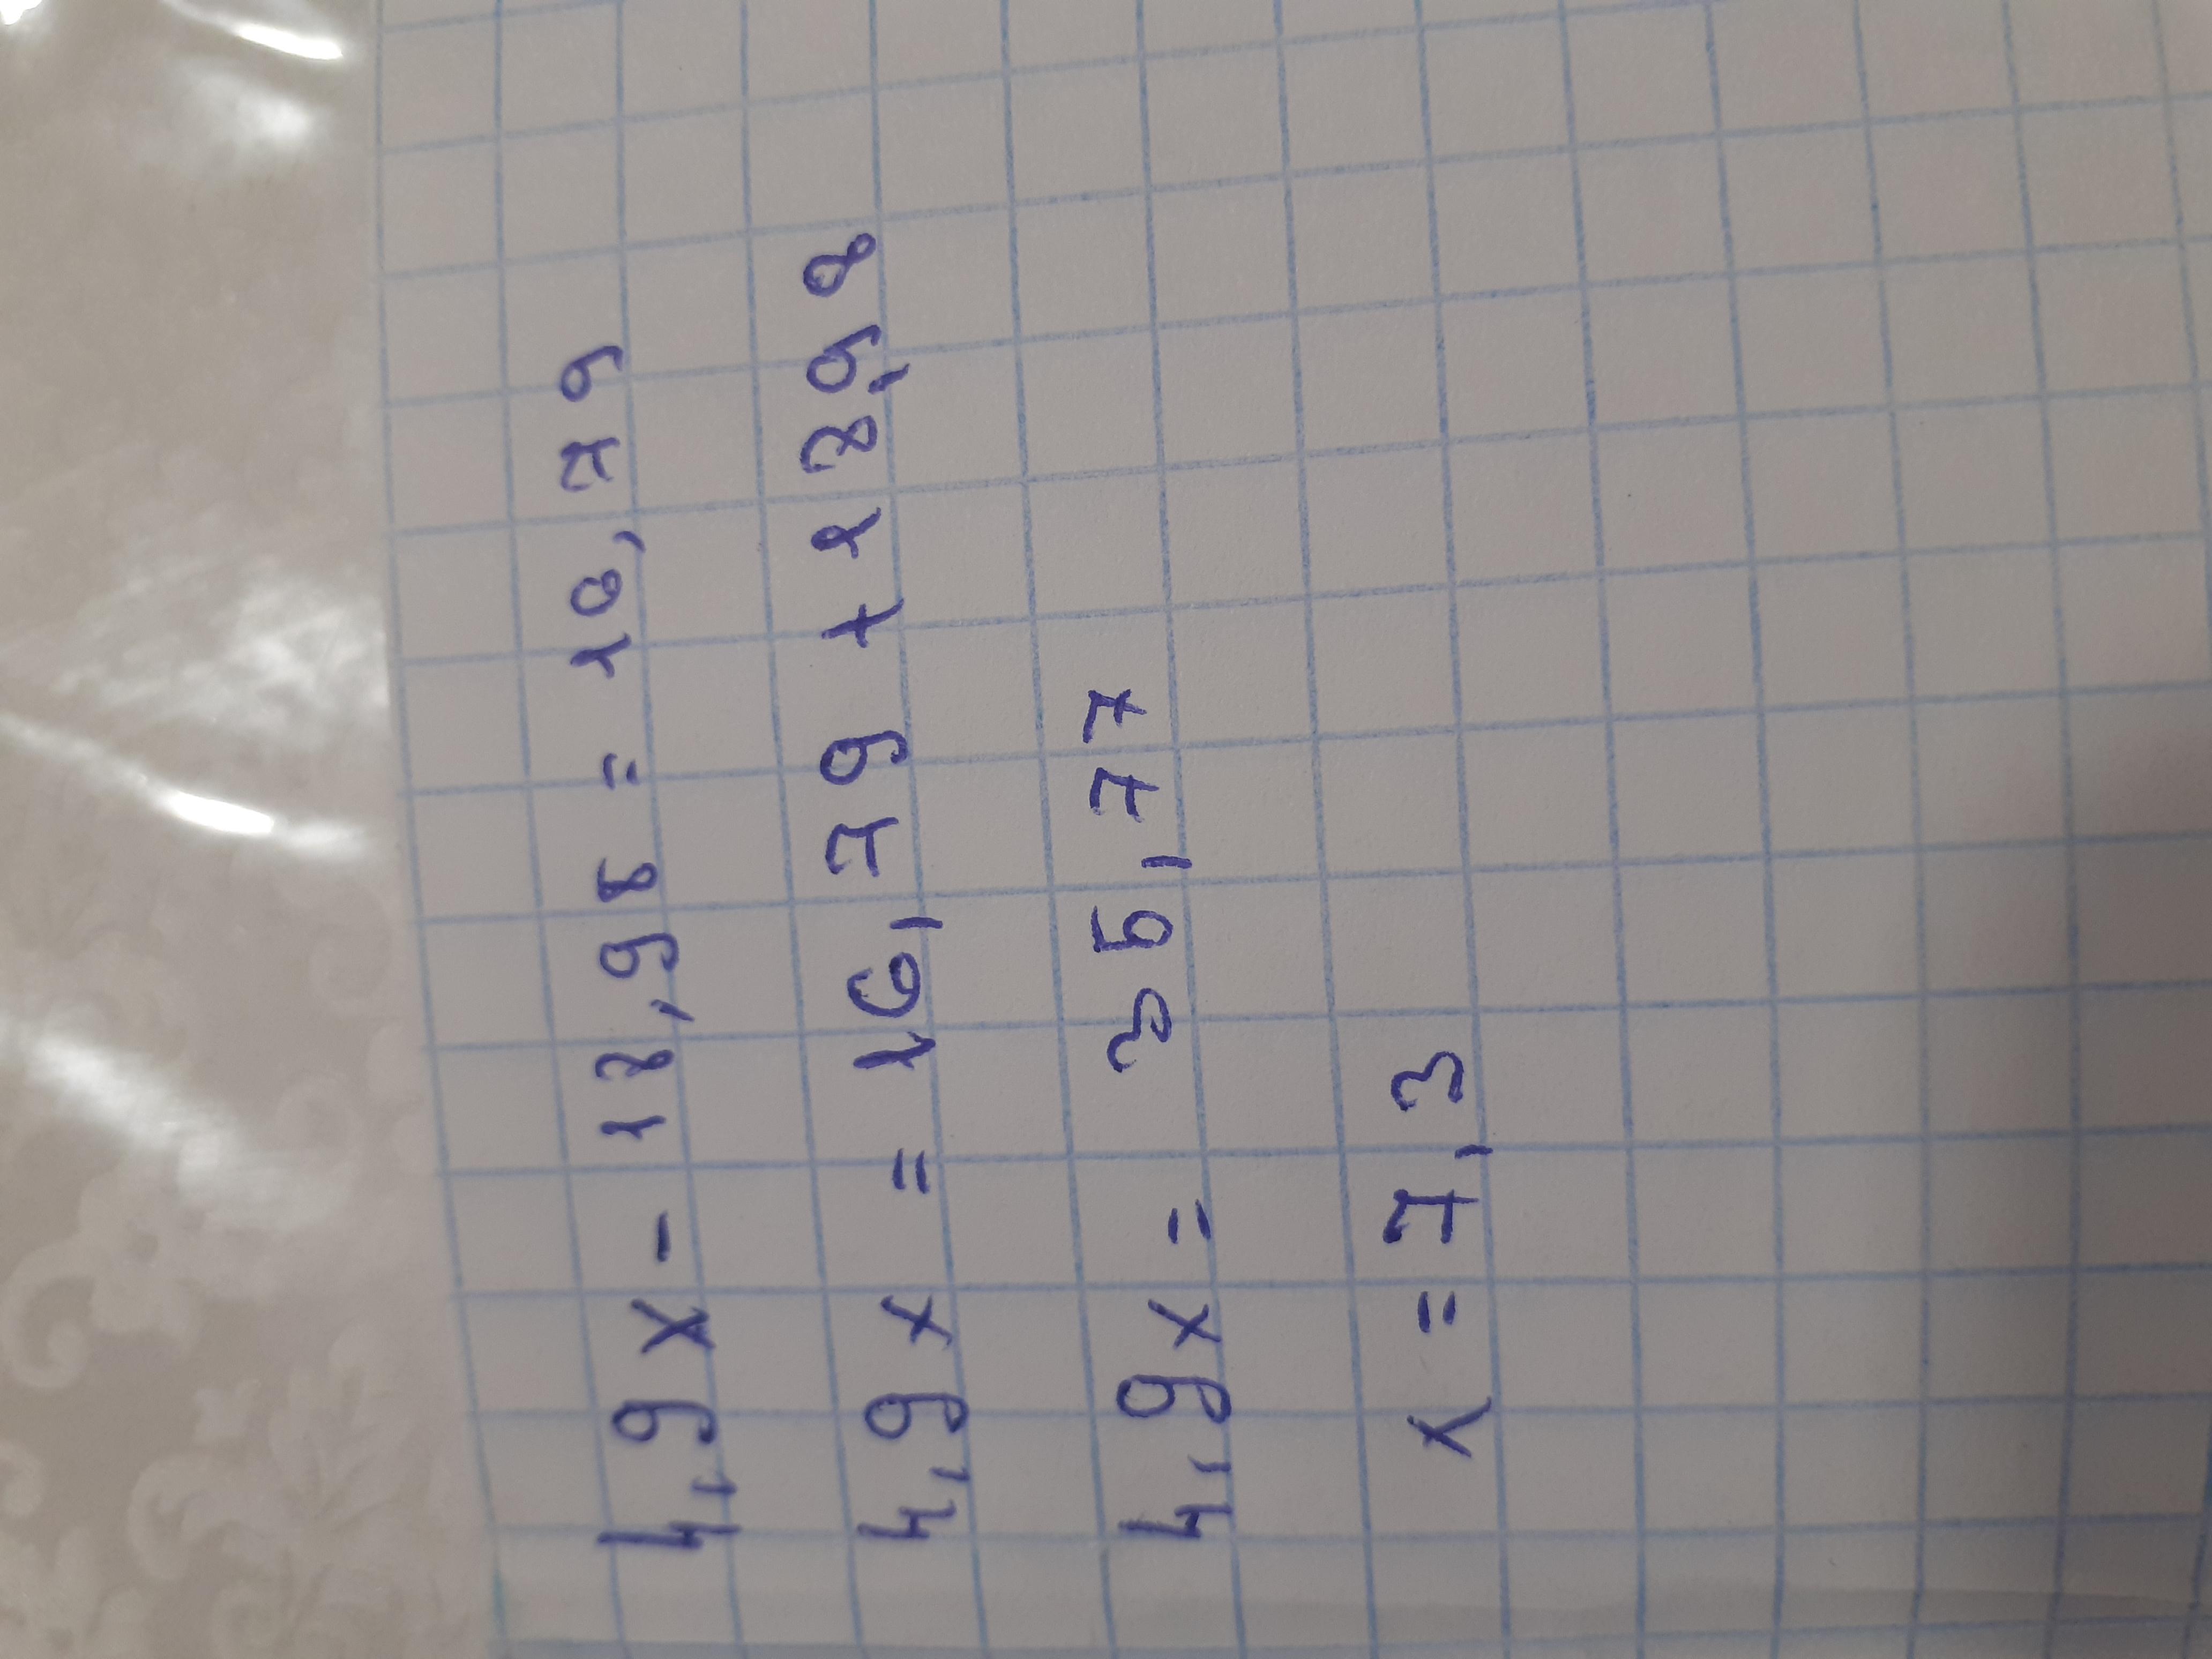 4,9x - 18,98 = 16,79
4,9x = 16,79 + 18,98
4,9x = 35,77
x = 7,3